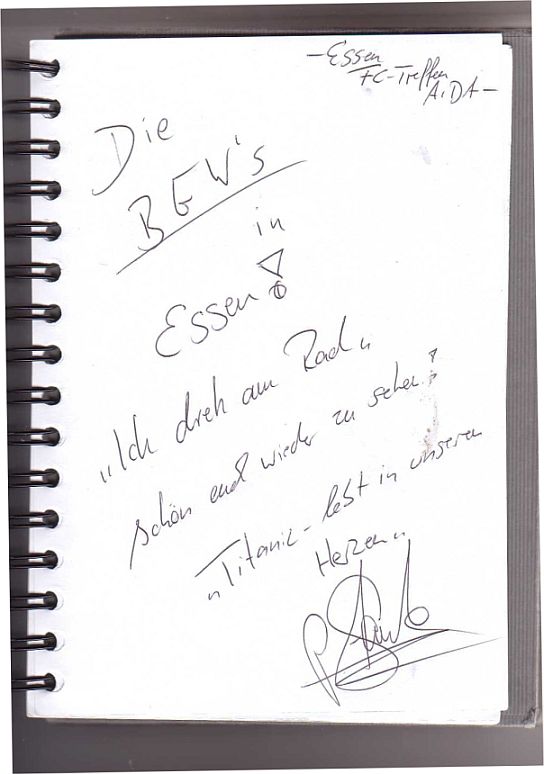 -Essen
FC-Treffen
AiDA-
Die
BEW's
in
Essen!
"Ich dreh am Rad"
schön euch wieder zu sehen!
"Titanic - lebt in unseren
Herzen"